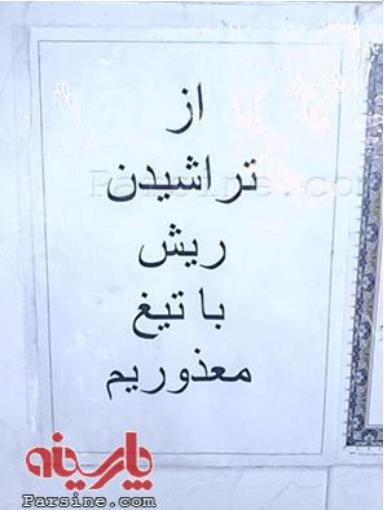 از
تراشیدن
ریش
با تیغ
معذوریم
Parsine.com
پارسینه
Parsine.com